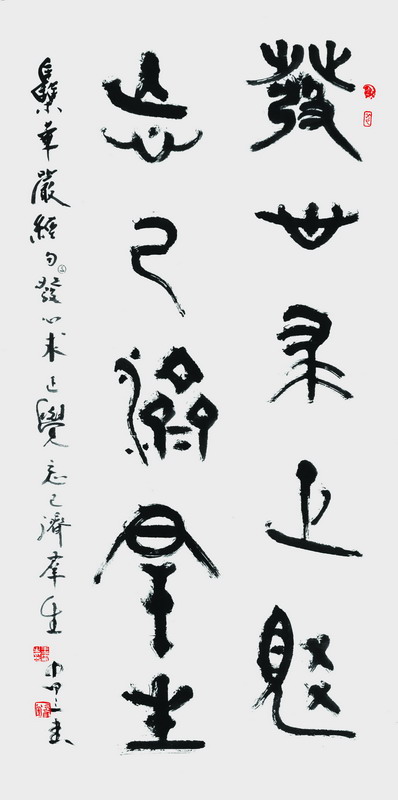 發心求正覺
忘己濟羣生
集華嚴經句發心求正覺忘己濟羣生 書